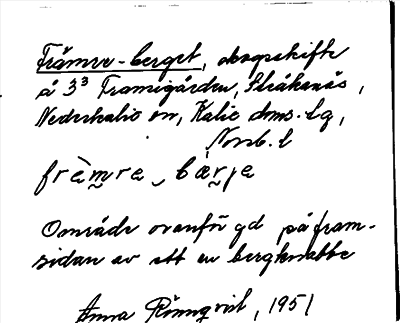 Främre-berget, skogsskifte
å 3³ Framigården, Stråkanäs,
Nederkalix sn, Kalix doms.lg,
Norrb. l
frèmre bærje
Område ovanför gd på fram-
sidan av ett en bergknabbe
Anna Rönnqvist, 1951